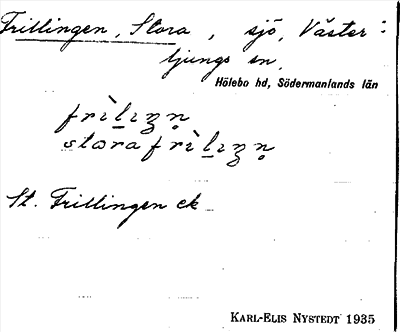 Frillingen, Stora, sjö, Väster:
ljungs sn.
Hölebo hd, Södermanlands län
frìlɩŋn̥
stora frìlɩŋn̥
St. Frillingen ek
KARL-ELIS NYSTEDT 1935